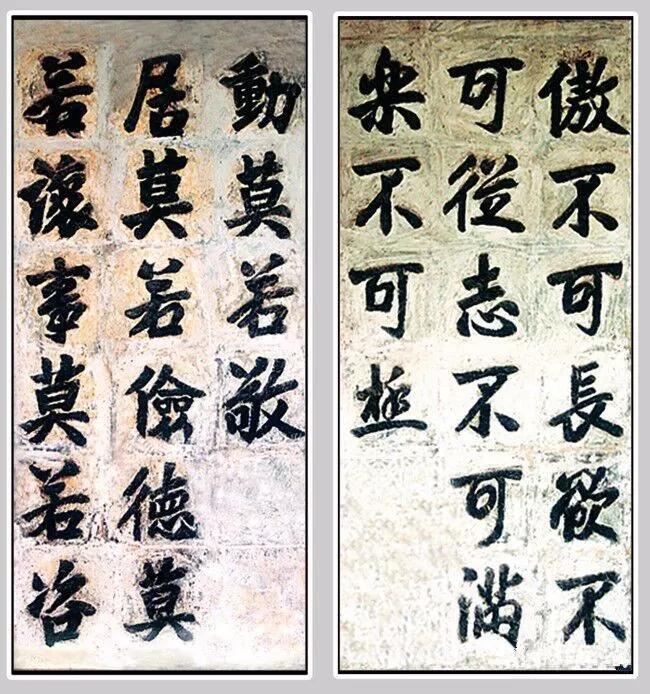 傲不可長欲不
可從志不可滿
樂不可極
動莫若敬
居莫若儉德莫
若讓事莫若咨